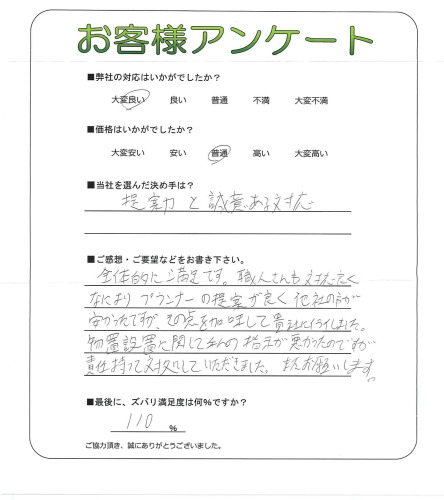 お客様アンケート
■弊社の対応はいかがでしたか?
大変良い 良い 普通 不満 大変不満
■価格はいかがでしたか?
大変安い 安い 普通 高い 大変高い
■当社を選んだ決め手は?
提案力と誠意ある対応
■ご感想・ご要望などをお書き下さい。
全体的に満足です。職人さんも対応良く
なにより プランナーの提案が良く 他社の方が
安かったですが、その点を加味して貴社にイライしました。
物置設置に関して私の指示が悪かったのですが
責任持って対処していただきました。またお願いします
■最後に、ズバリ満足度は何%ですか?
110 %
ご協力頂き、誠にありがとうございました。